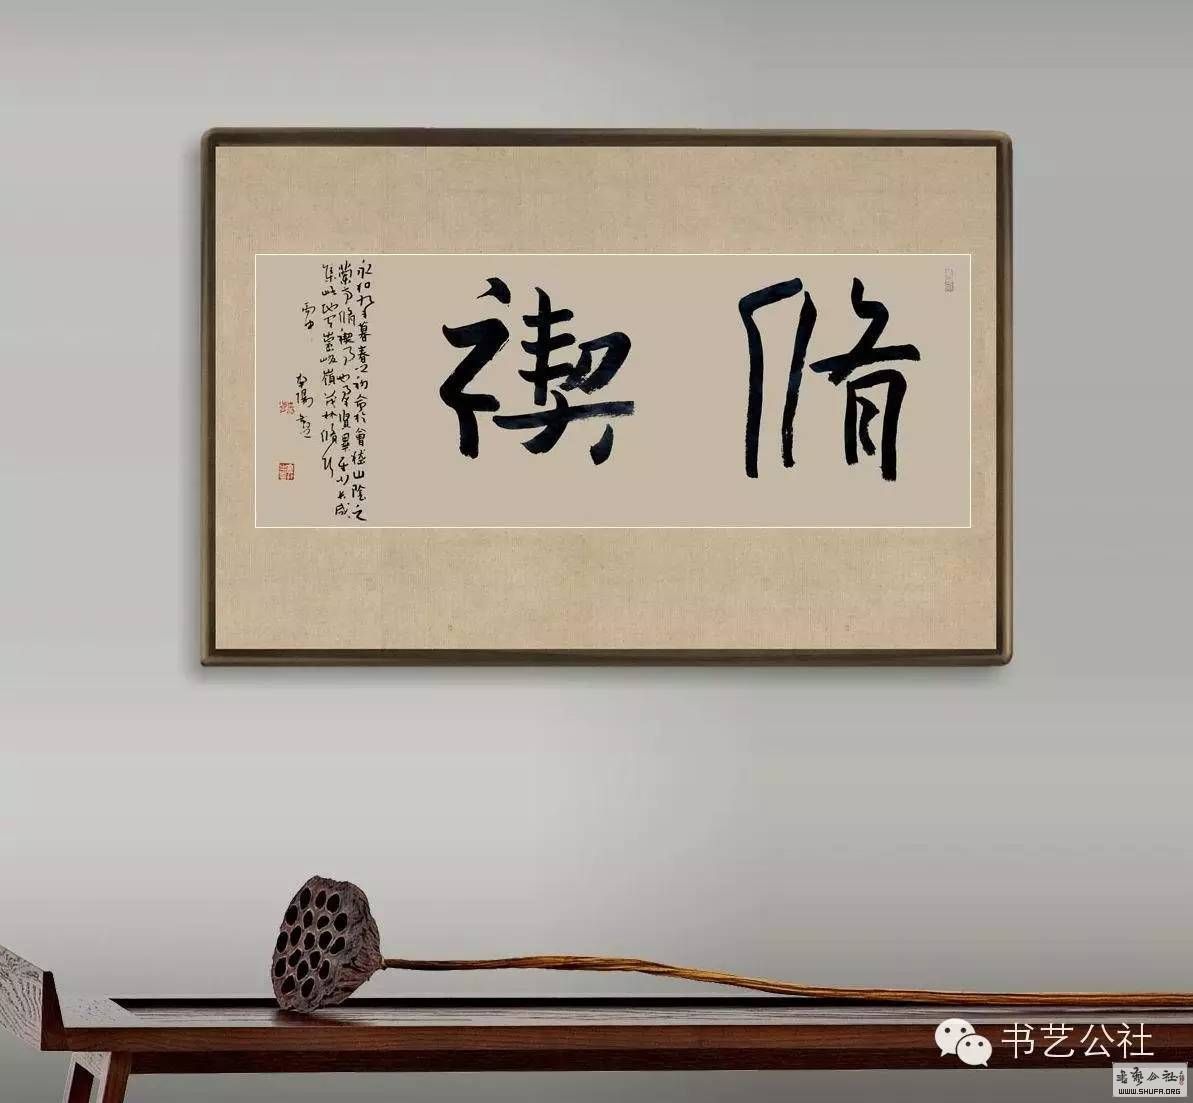 脩禊
永和九年暮春之初會於會稽山陰之
蘭亭脩禊事也羣賢畢至少長咸
集此地有崇峻嶺茂林脩竹
南陽
书艺公社
书艺公社
WWW.SHUFA.ORG